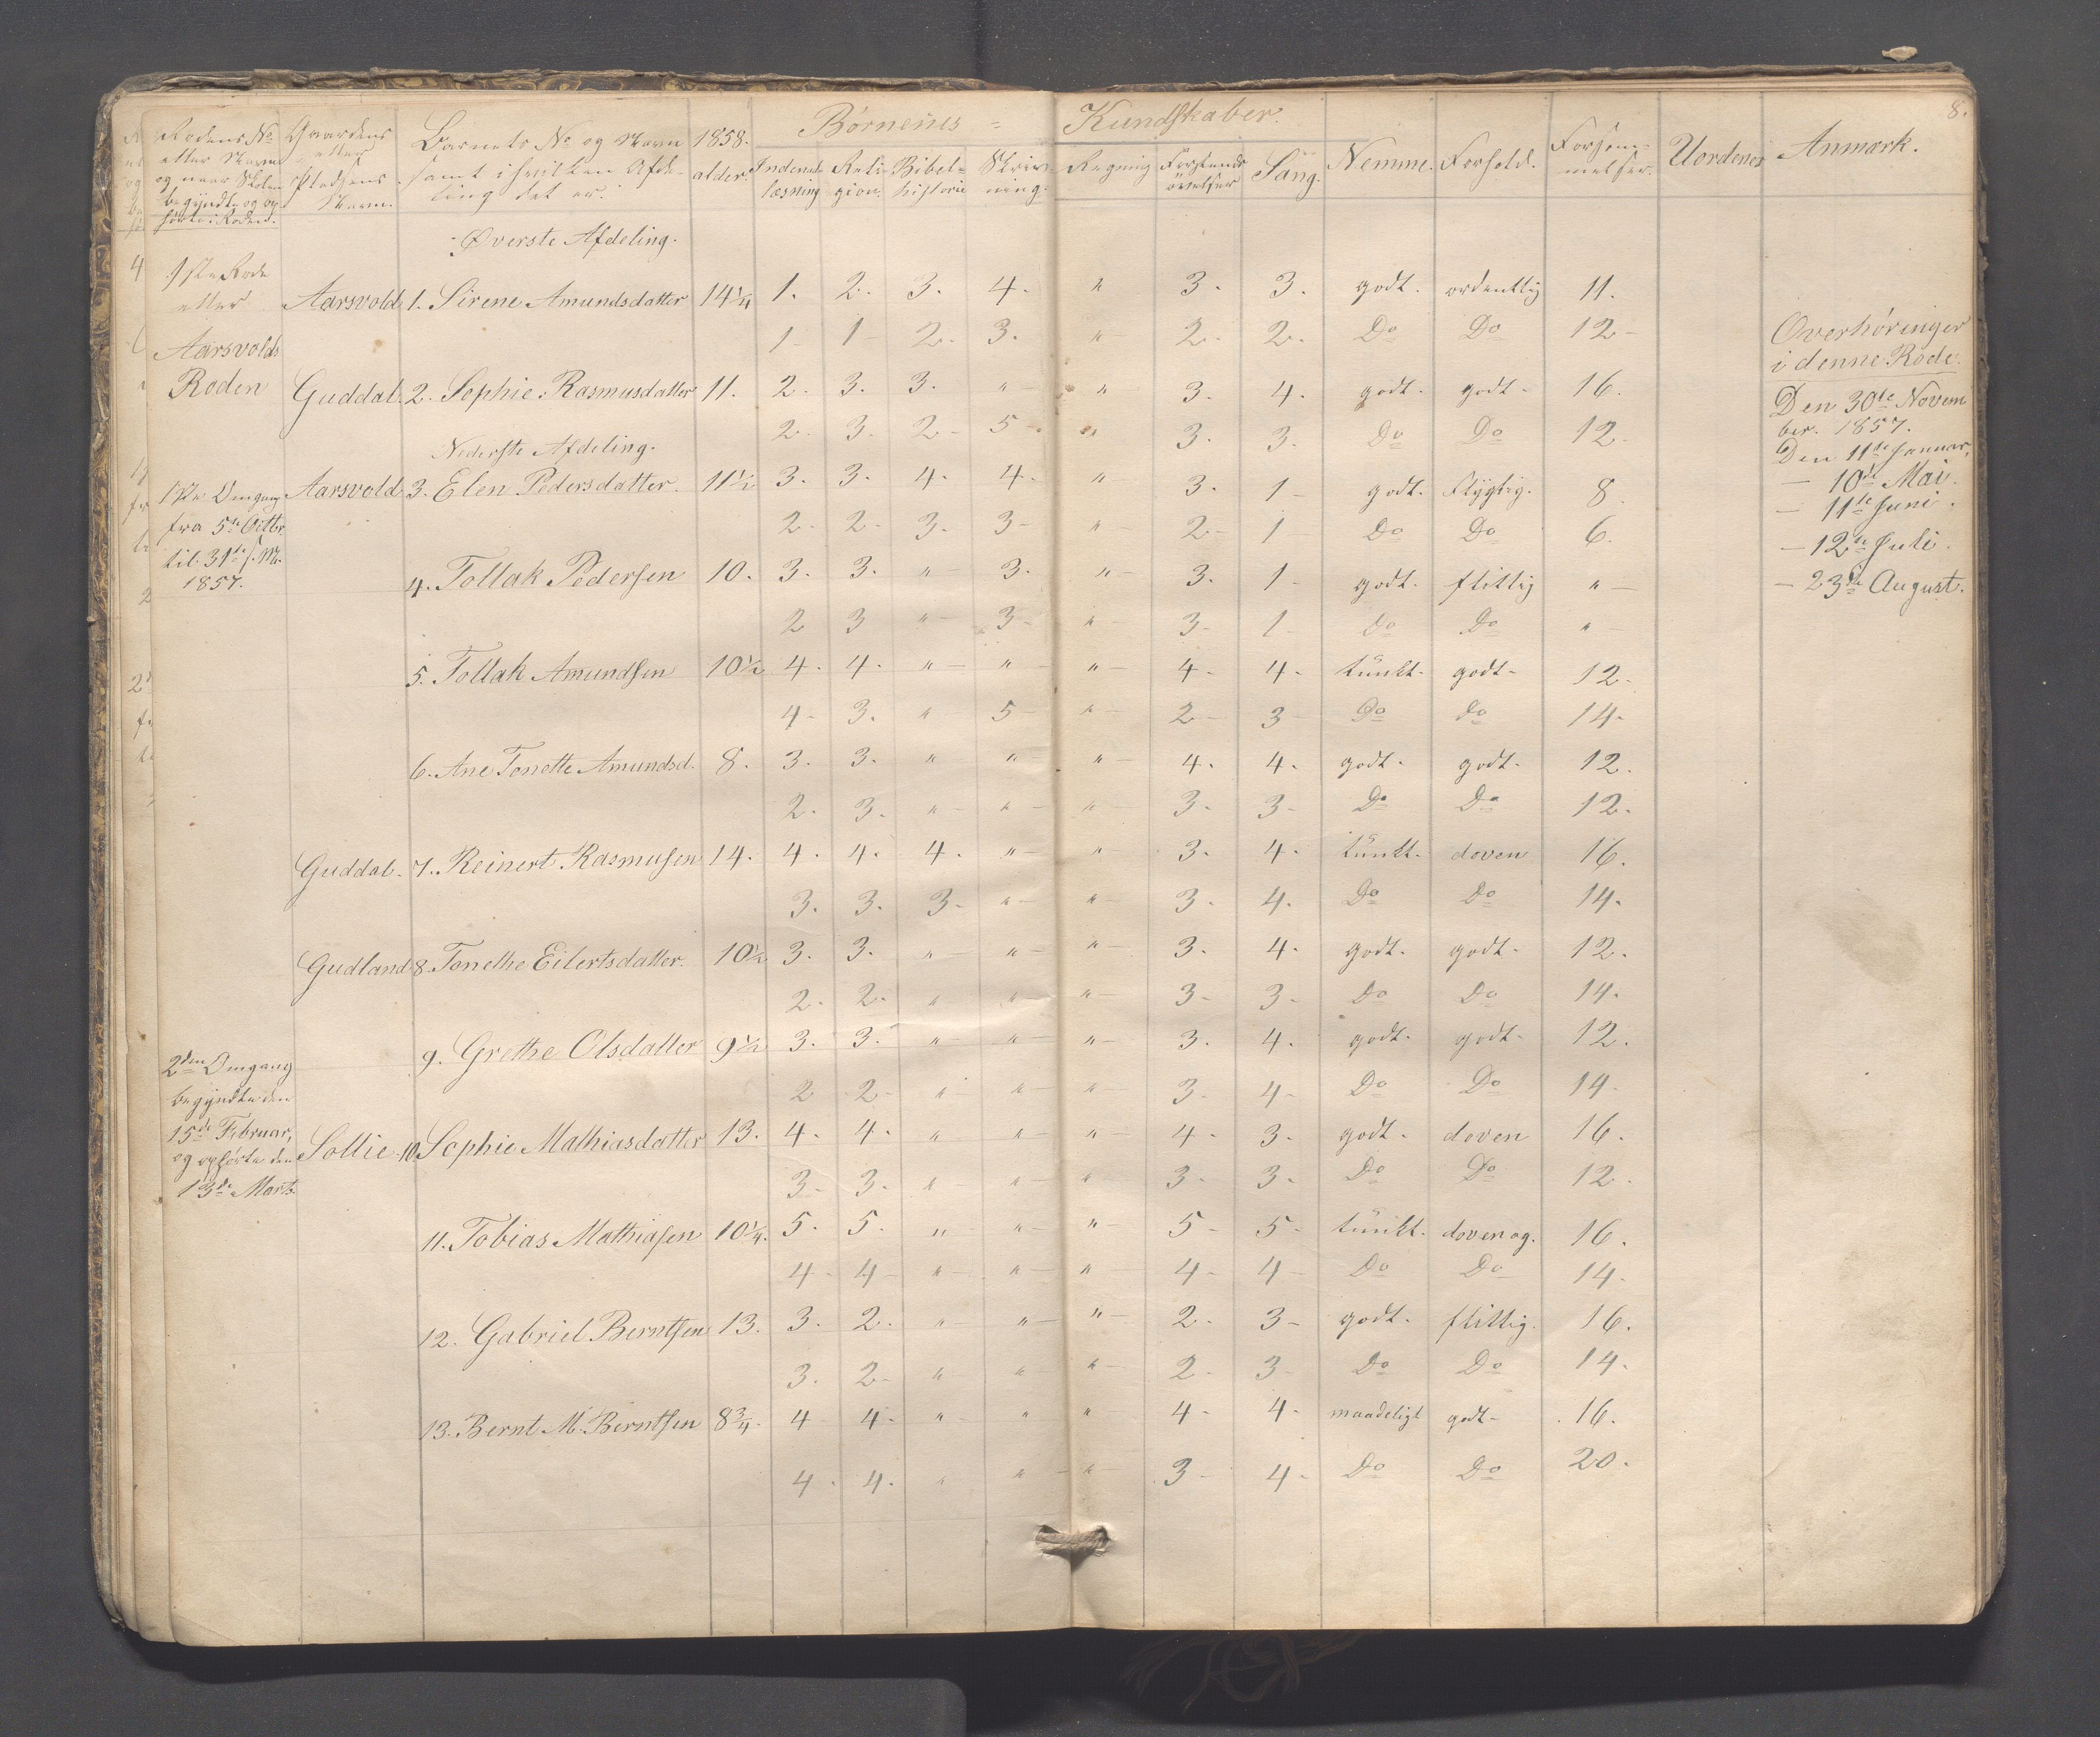 8.
Rodens No Gaardens Barnets No og Navn 1858. Børnenes = Kundskaber.
eller Navn eller samt i hvilken Afde- alder. Indenad- Reli- Bibel- Skriv- Regning Forstands- Sang. Nemme. Forhold. Forsøm- Uordener Anmærk.
og naar Skolen Pladsens ling det er. læsning gion. historie ning. øvelser melser.
begyndte og op- Navn.
hørte i Roden.
Øverste Afdeling.
1ste Rode
eller Aarsvold 1. Sirene Amundsdatter 14 1/4 1. 2. 3. 4. " 3. 3. godt. ordentlig 11.
Aarsvolds 1 1 2. 3. " 2. 2. Do Do 12 Overhøringer
i denne Rode.
Roden Guddal. 2. Sophie Rasmusdatter 11. 2. 3. 3. " " 3. 4. godt. godt 16. Den 30te Novem
2. 3. 2 5 " 3. 3. Do Do 12. ber. 1857.
Nederste Afdeling. Den 11te Januar,
1ste Omgang Aarsvold 3. Elen Pedersdatter. 11 1/2 3. 3. 4. 4. " 3. 1 godt. Flygtig. 8. — 10de Mai.
fra 5te Octbr. 2. 2 3. 3 " 2 1 Do Do 6. — 11te Juni.
til 31te s. M. — 12te Juli.
1857. 4. Tollak Pedersen 10. 3. 3. " 3. " 3. 1 godt. flittig " — 23de August.
2 3 " 3 " 3 1 Do Do "
5. Tollak Amundsen 10 1/2 4. 4. " " " 4. 4. tunkt. godt 12.
4. 3. " 5 " 2 3 Do Do 14.
6. Ane Tonette Amundsd. 8. 3. 3. " " " 4. 4. godt. godt. 12.
2. 3. " " " 3. 3 Do Do 12.
Guddal. 7. Reinert Rasmusen 14. 4. 4. 4. " " 3. 4. tunkt. doven 16.
3. 3. 3. " " 3. 4. Do Do 14.
Gudland 8. Tonethe Eilertsdatter. 10 1/2 3. 3. " " " 3. 4. godt. godt. 12.
2. 2. " " " 3 3. Do Do 14.
9. Grethe Olsdatter 9 1/2 3. 3. " " " 3. 4. godt. godt 12.
2den Omgang
begyndte den 2 2 " " " 3. 4 Do Do 14
15de Februar,
og ophørte den Sollie. 10. Sophie Mathiasdatter 13. 4. 4. " " " 4. 3. godt. doven 16.
13de Marts. 3 3. " " " 3 3. Do Do 12.
11. Tobias Mathiasen 10 1/4. 5. 5. " " " 5 5. tunkt. doven og. 16.
4 4 " " " 4 4 Do Do 14.
12. Gabriel Berntsen 13. 3. 2. " " " 2. 3 godt. flittig. 16.
3. 2 " " " 2 3 Do Do 14.
13. Bernt M. Berntsen 8 3/4. 4 4. " " " 4 4. maadeligt godt 16.
4 4. " " " 3 4 Do Do 20.